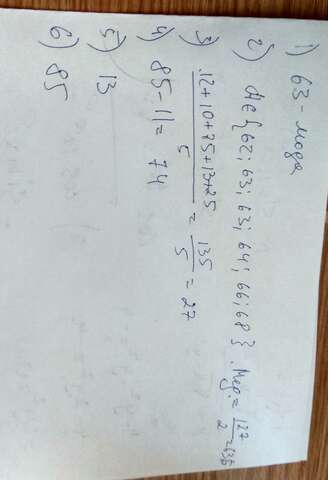 1) 63 - мода
2) Me{62; 63; 63; 64; 66; 68}. Мед. = 127/2 = 63,5
3) (12+10+75+13+25)/5 = 135/5 = 27
4) 85 - 11 = 74
5) 13
6) 85